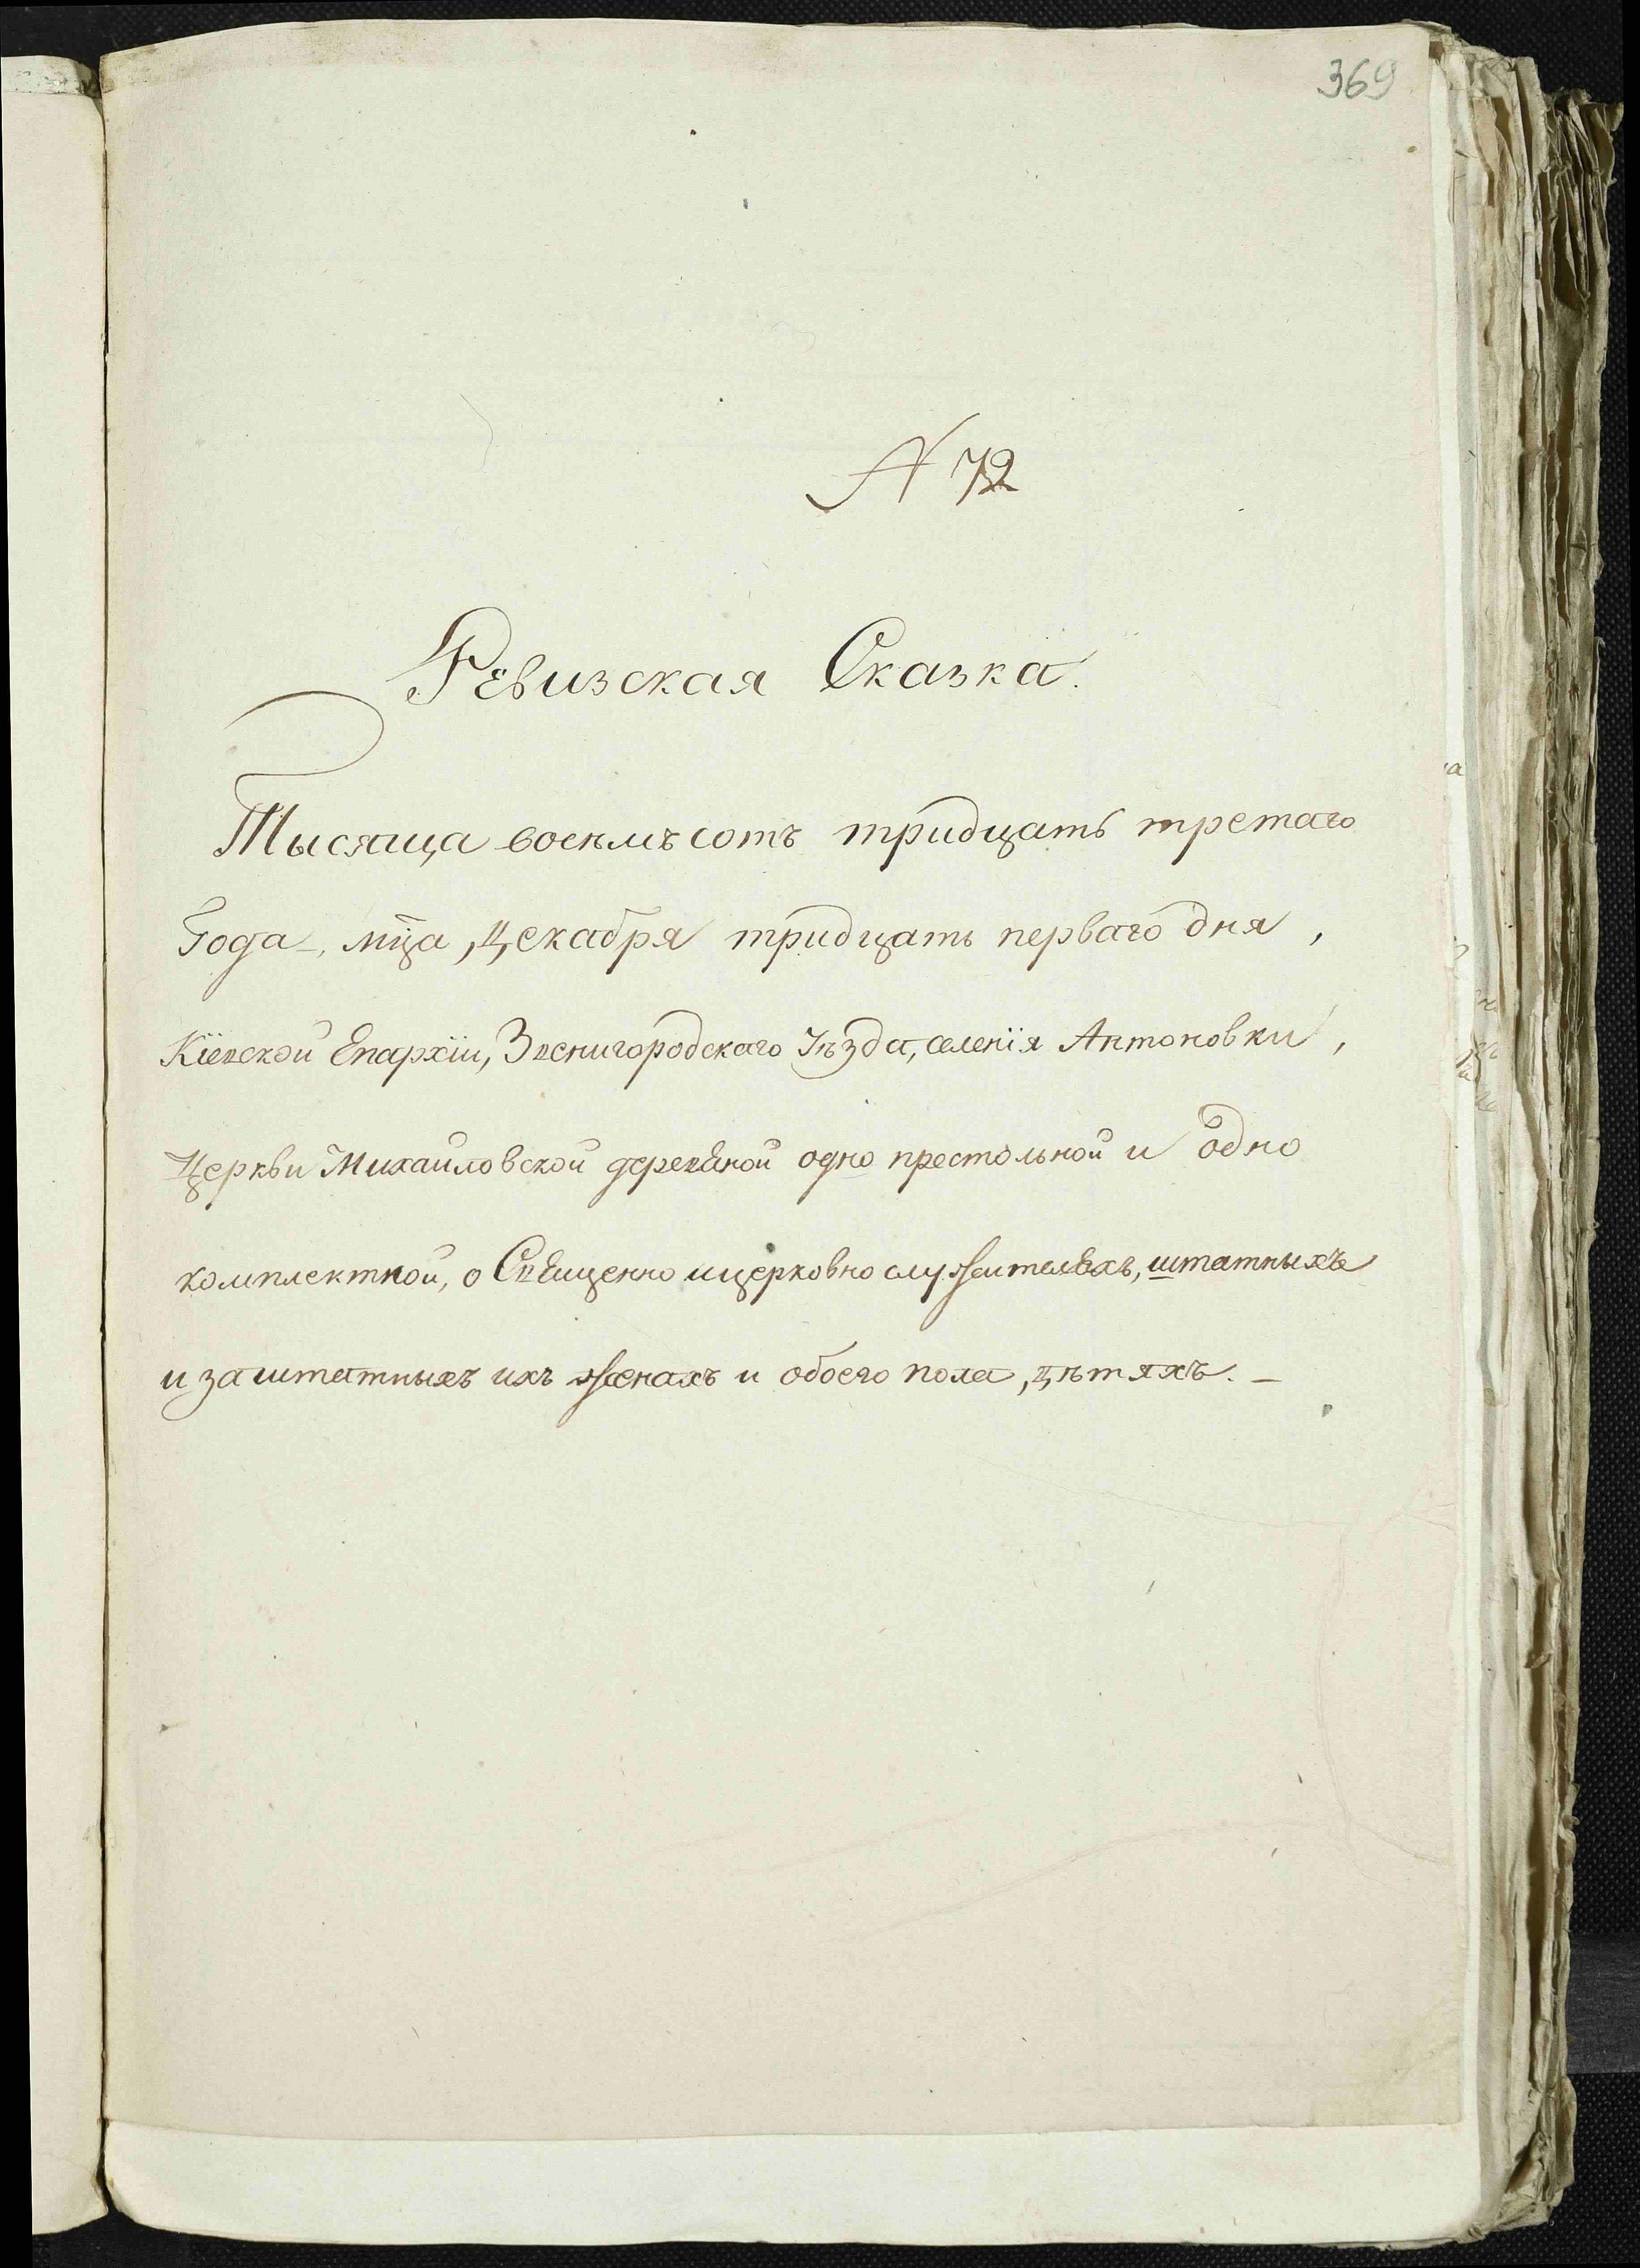 369
№ 72
Ревизская Сказка.
Тысяща восемъ сотъ тридцать третаго
Года, мца, Декабря тридцать перваго дня,
Кіевской Епархіи, Звенигородскаго Уѣзда, селенія Антоновки,
Церкви Михаиловской деревяной одно престольной и одно
комплектной, о Священно ицерковно служителяхъ, штатныхъ
и заштатныхъ ихъ женахъ и обоего пола, дѣтяхъ. –